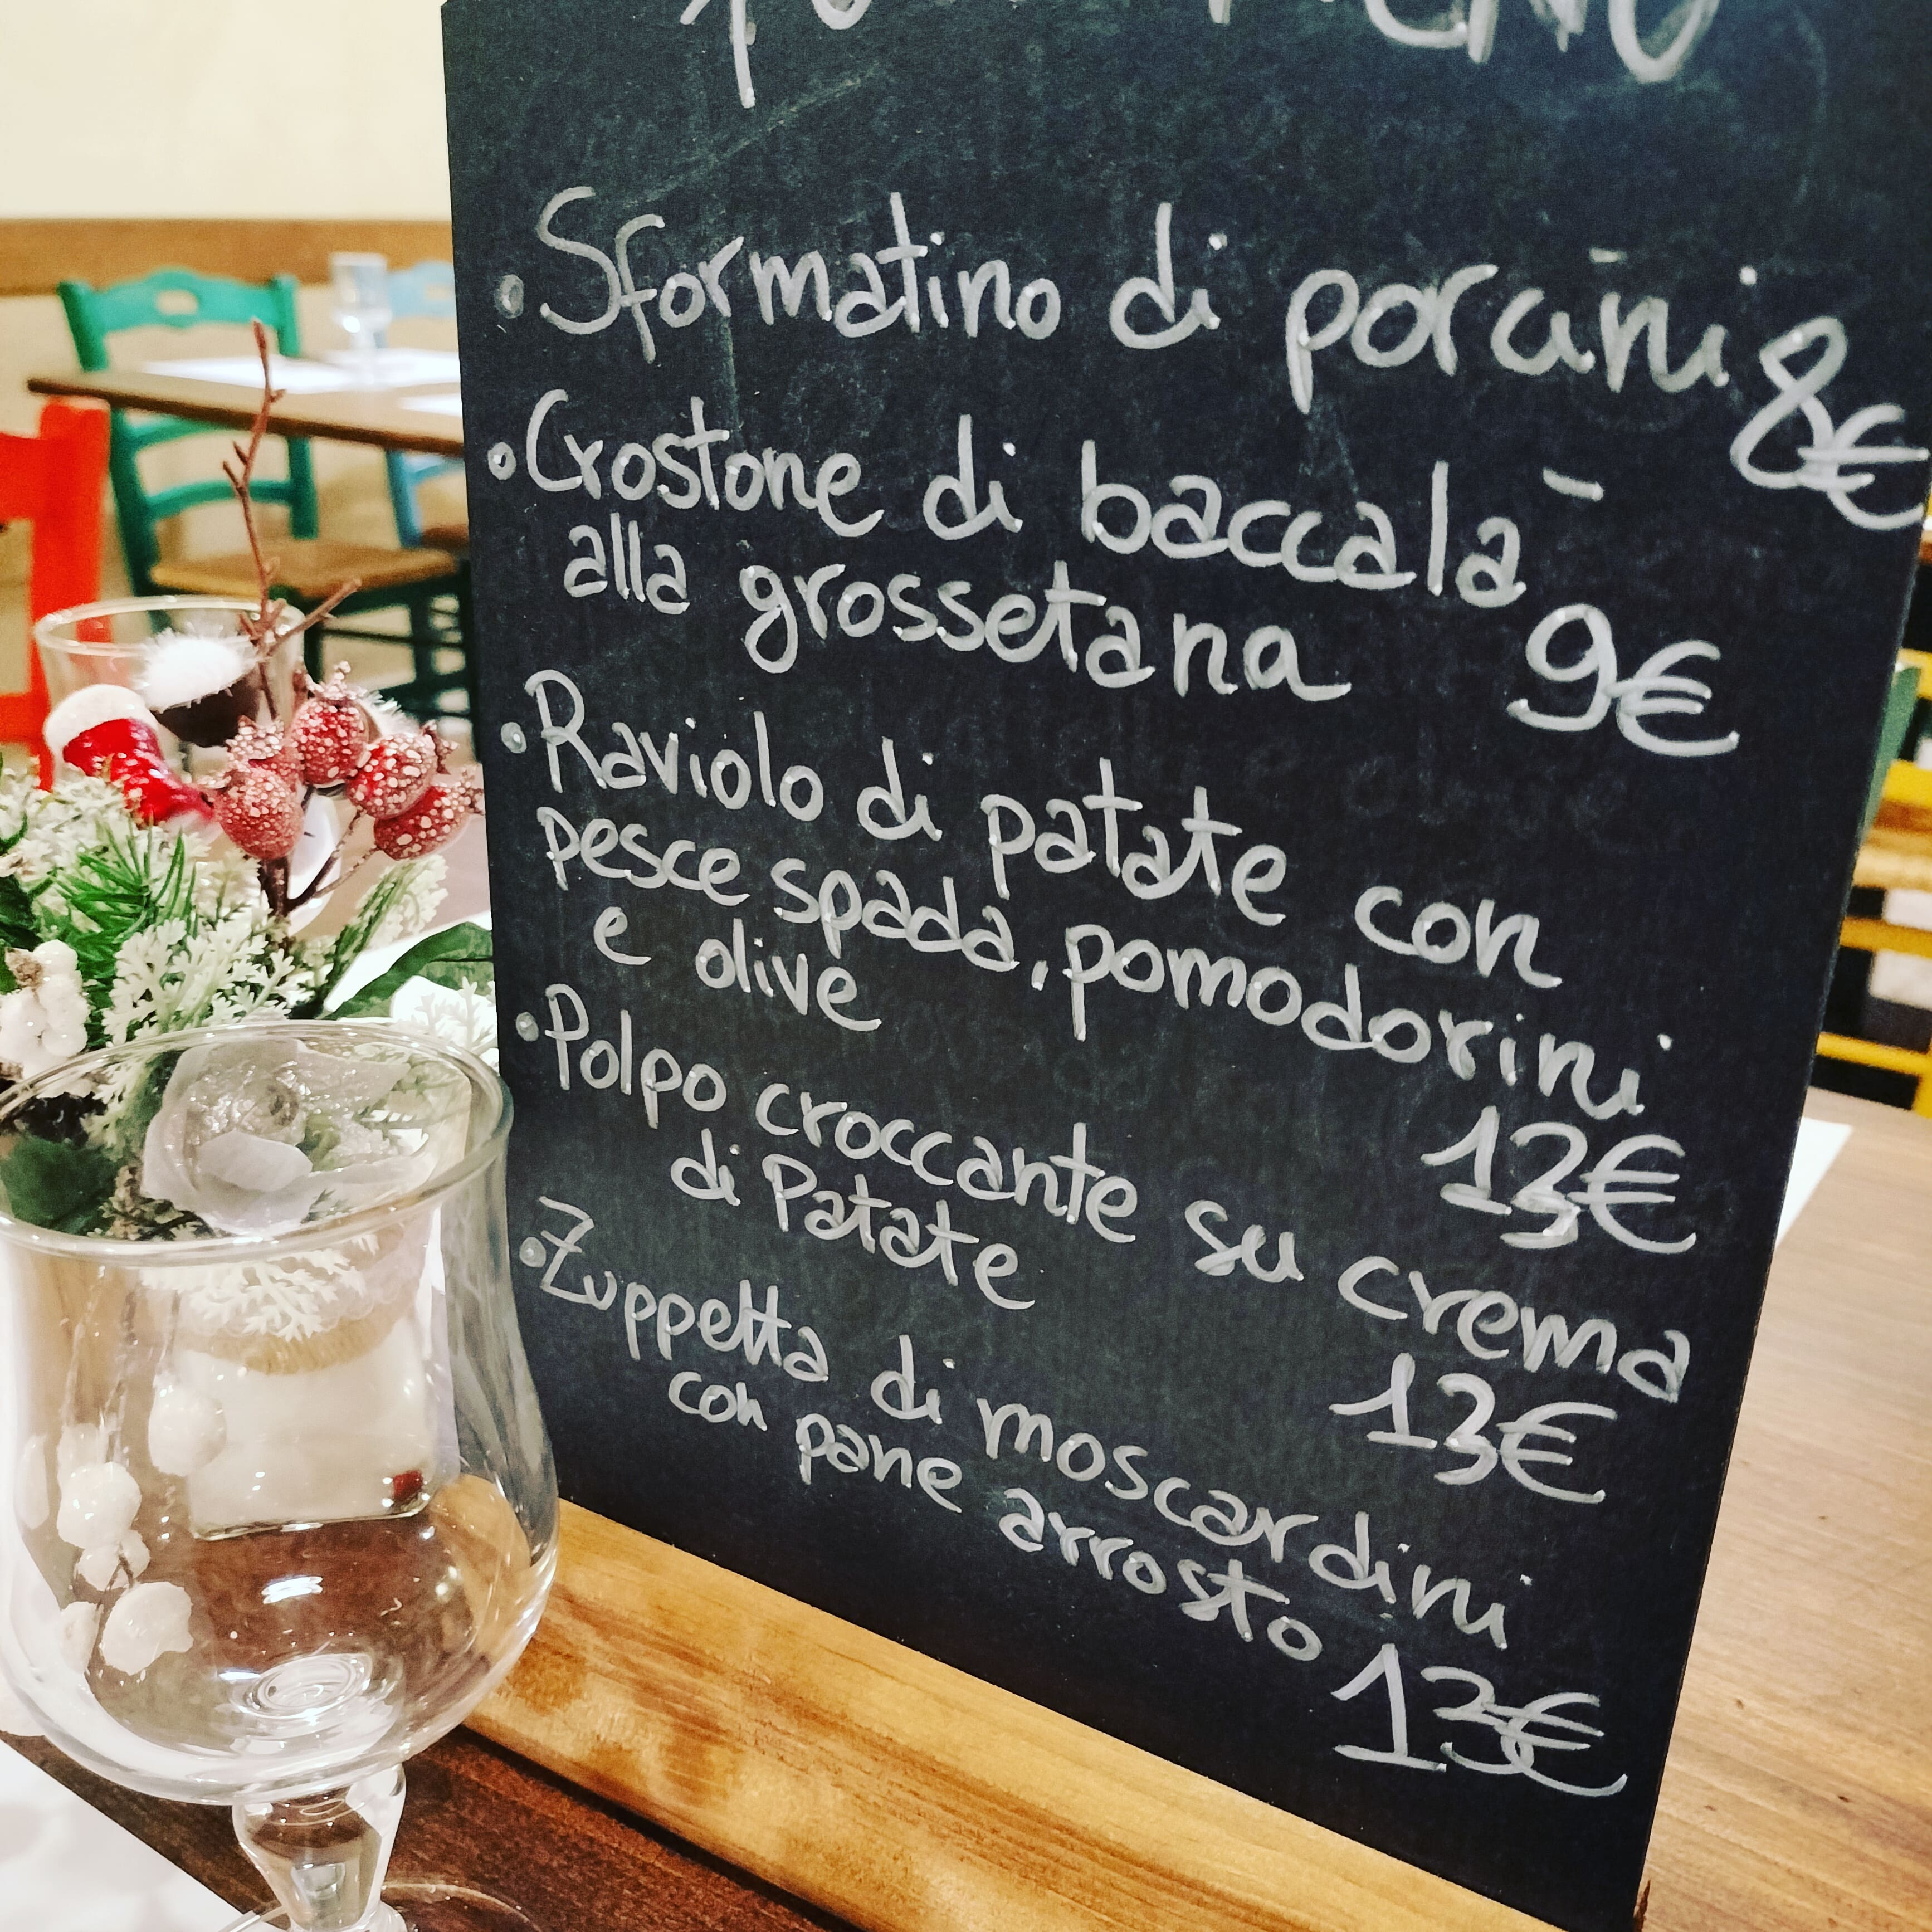 • Sformatino di porcini 8€
• Crostone di baccalà
alla grossetana 9€
• Raviolo di patate con
pesce spada, pomodorini
e olive
13€
• Polpo croccante su crema
di Patate
13€
• Zuppetta di moscardini
con pane arrosto 13€